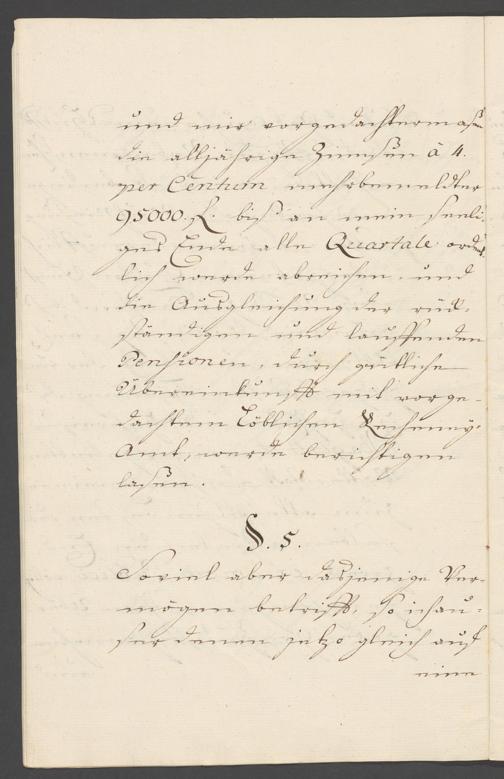 und mir vorgedachtermasen
die alljährige Zinnsen à 4.
per Centum mehrbemeldter
95000. fl. biß an mein seeli-
ges Ende alle Quartale ordt-
lich werde abreichen, und
die Ausgleichung der rück-
ständigen und lauffenden
Pensionen, durch gütliche
Übereinkunfft mit vorge-
dachtem Löblichen Recheney-
Amt, werde berichtigen
lasen.
§. 5.
Soviel aber dasjenige Ver-
mögen betrifft, so ich au-
ser denen jetzo gleich auf
eine